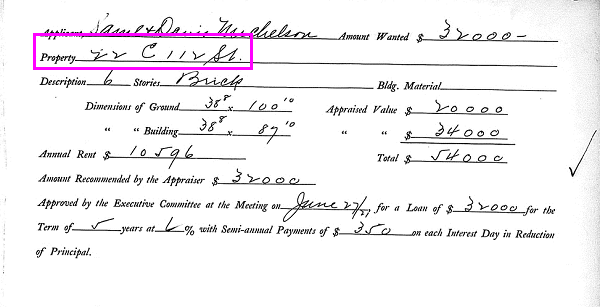 Applicant Saml & David Michelson Amount Wanted $ 32000-
Property 22 E 112 St.
Description 6 Stories Brick Bldg. Material
Dimensions of Ground 38⁸ x 100¹⁰ Appraised Value $ 20000
" " Building 38⁸ x 87¹⁰ " " $ 34000
Annual Rent $ 10596 Total $ 54000
Amount Recommended by the Appraiser $ 32000
Approved by the Executive Committee at the Meeting on June 27/27 for a Loan of $ 32000 for the
Term of 5 years at 6 % with Semi-annual Payments of $ 350 on each Interest Day in Reduction
of Principal.